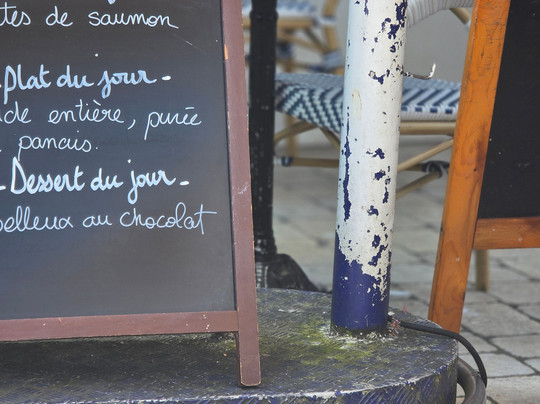 tes de saumon
Plat du jour -
de entière, purée
panais.
- Dessert du jour -
elleux au chocolat